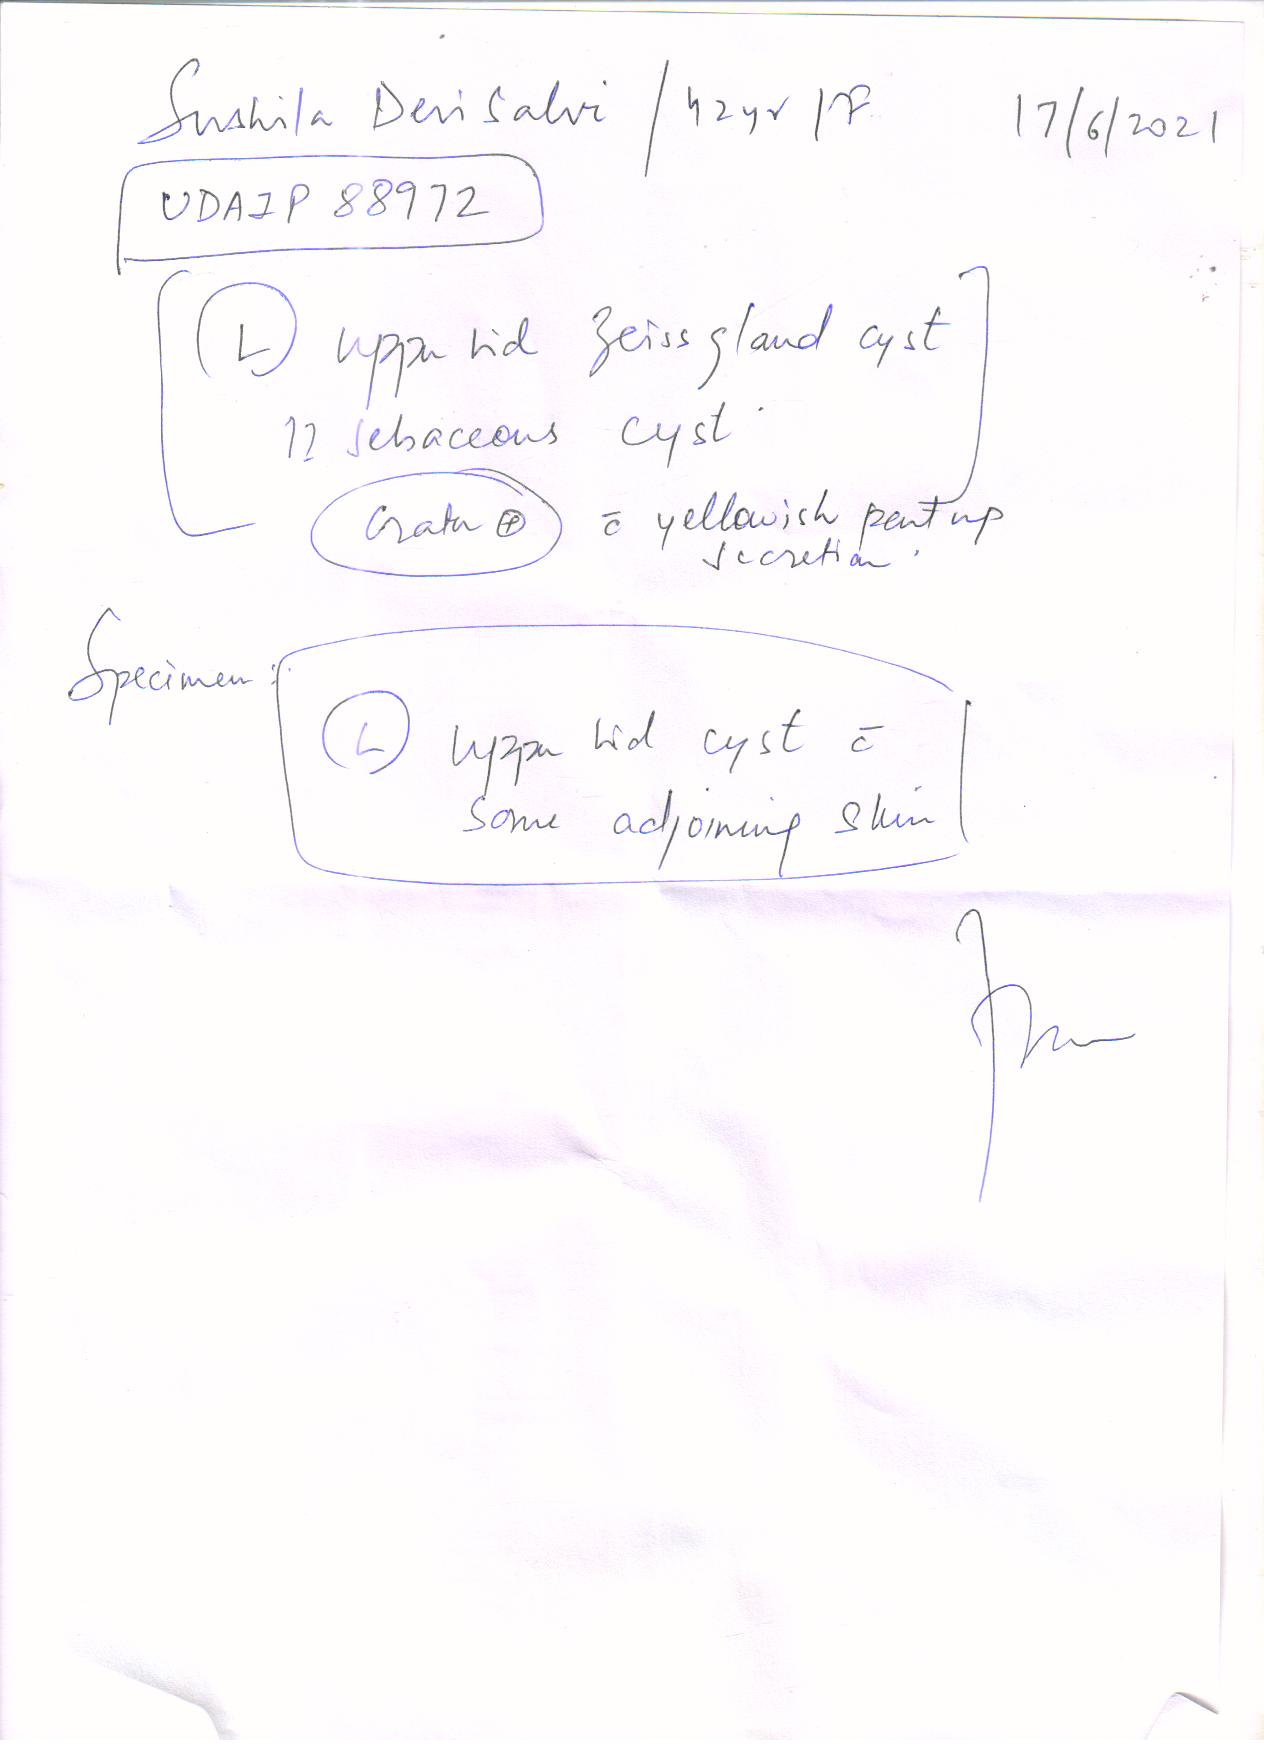 Sushila Devi Salvi / 42yr / F 17/6/2021
UDAIP 88972
(L) upper lid Zeiss gland cyst
?? sebaceous cyst
Crater ⊕ c̄ yellowish pent up
secretion.
Specimen :
(L) upper lid cyst c̄
some adjoining skin